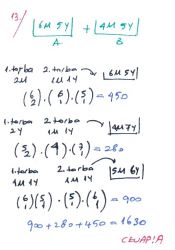 13./ 6M 5Y + 4M 5Y
A B
1.torba 2.torba 6M 5Y
2M 1M 1Y
(6 2) . (6 1) . (5 1) = 450
1.torba 2.torba 4M 7Y
2Y 1M 1Y
(5 2) . (4) . (7 1) = 280
1.torba 2.torba 5M 6Y
1M 1Y 1M 1Y
(6 1) (5 1) . (5 1) . (6 1) = 900
900 + 280 + 450 = 1630
CEVAP: A